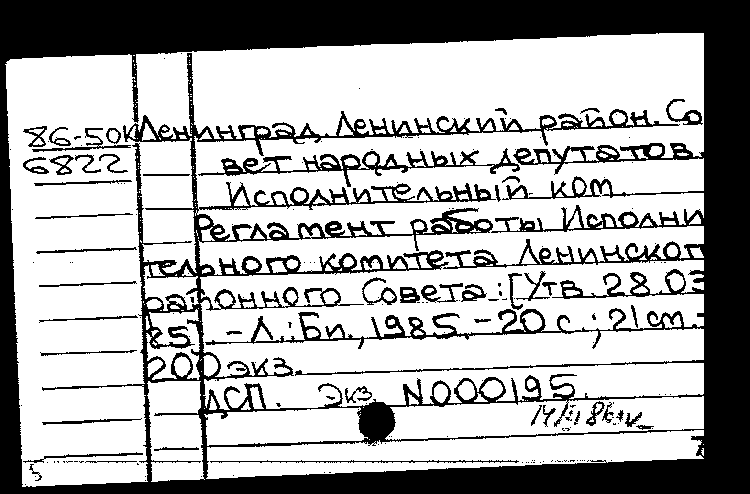 86-50к Ленинград. Ленинский район. Со
6822 вет народных депутатов.
Исполнительный ком.
Регламент работы Исполни
тельного комитета Ленинског
районного Совета : [Утв. 28.03
85]. - Л. : Би., 1985. - 20 с. ; 21 см. -
200 экз.
ДСП. Экз. N000195.
5